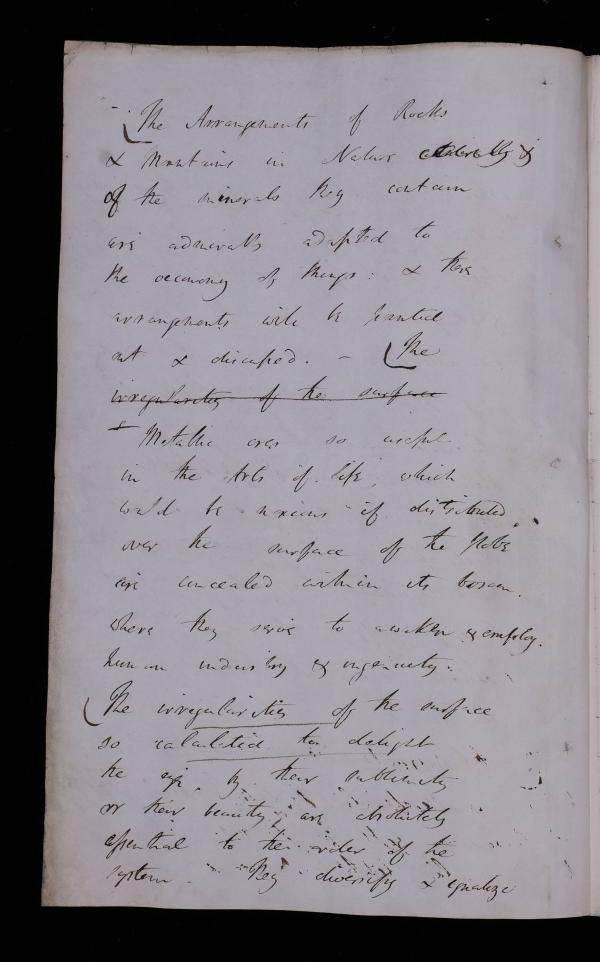 The Arrangements of Rocks
& Mountains in Nature &
of the minerals they contain
are admirably adapted to
the oeconomy of things: & these
arrangements will be pointed
out & discussed. – The
irregularities of the surface
Metallic ores so useful
in the Arts of life, which
would be noxious if distributed
over the surface of the globe
are concealed within its bosom.
where they serve to awaken & employ.
human industry & ingenuity.
The irregularities of the surface
so calculated to delight
the eye, by their sublimity
or their beauty; are absolutely
essential to the order of the
system. They diversify & equalize